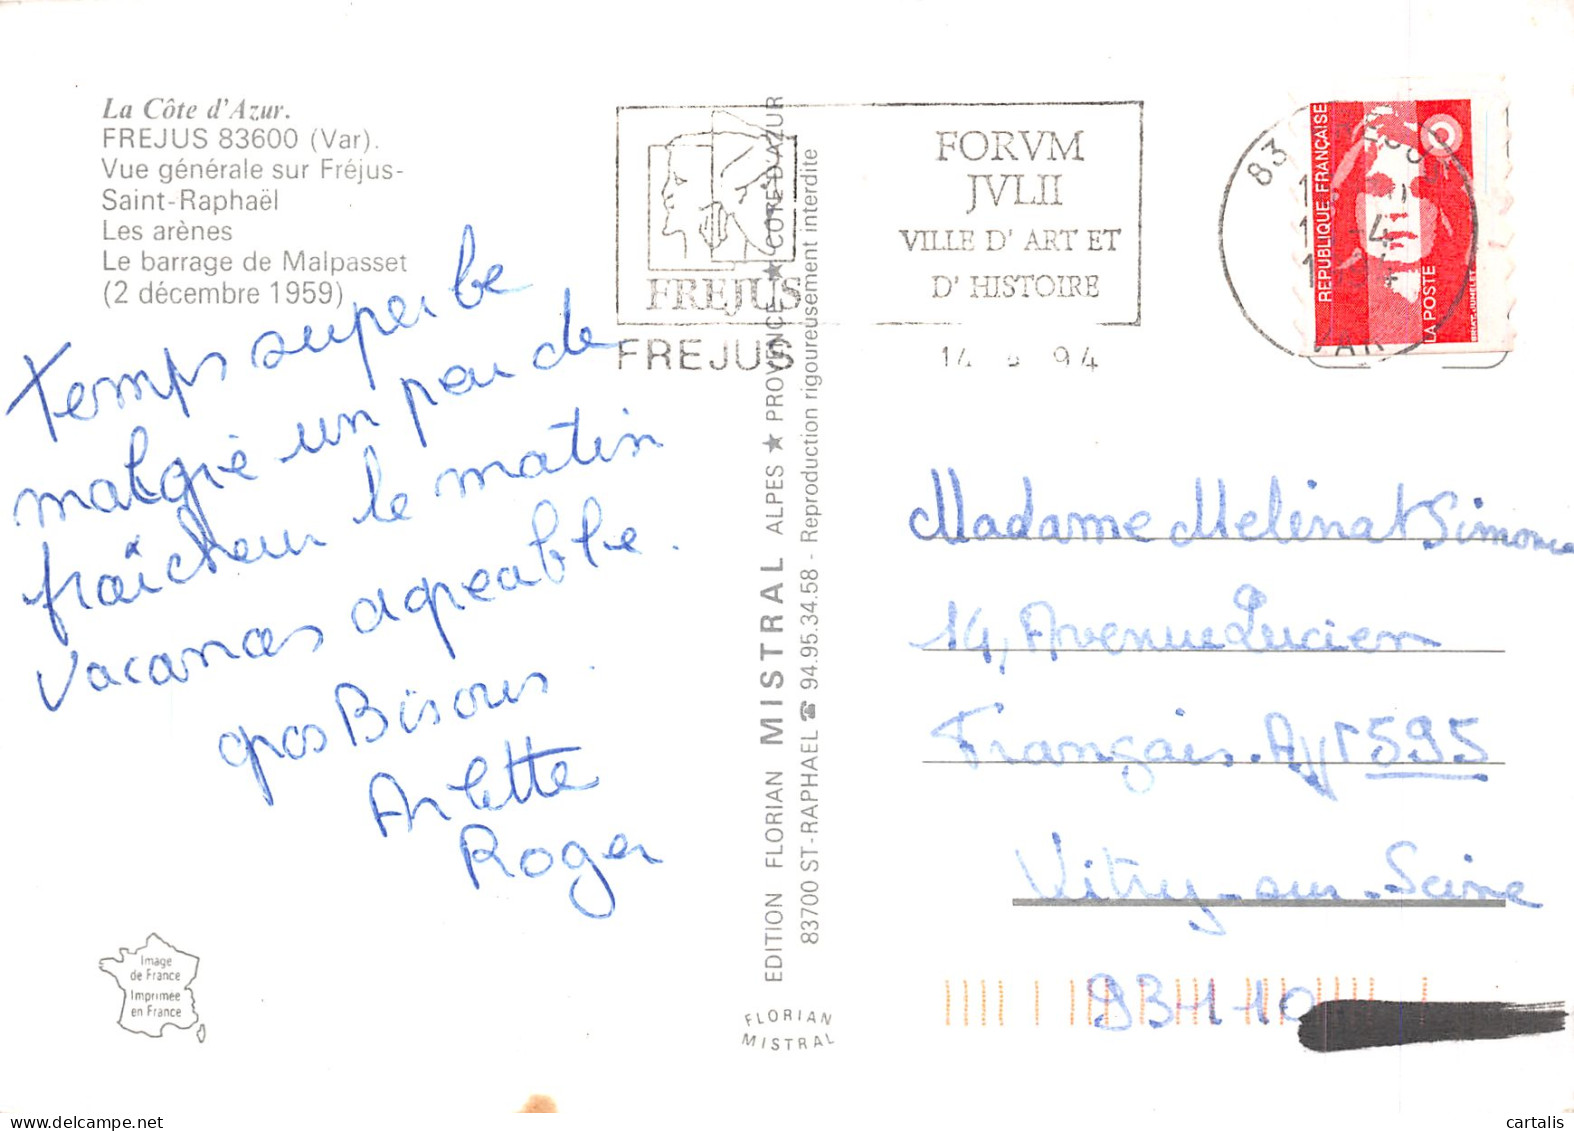 La Côte d'Azur.
FREJUS 83600 (Var).
Vue générale sur Fréjus-
Saint-Raphaël
Les arènes
Le barrage de Malpasset
(2 décembre 1959)
Temps superbe
malgré un peu de
fraîcheur le matin
Vacances agréable.
gros Bisous.
Arlette
Roger
Image
de France
Imprimée
en France
EDITION FLORIAN MISTRAL ALPES ★ PROVENCE ★ COTE D'AZUR
83700 ST-RAPHAEL ☎ 94.95.34.58 - Reproduction rigoureusement interdite
FLORIAN
MISTRAL
FREJUS
FORVM
JVLII
VILLE D' ART ET
D' HISTOIRE
FREJUS
94
83
VAR
REPUBLIQUE FRANÇAISE
LA POSTE
BRIAT-JUMELET
Madame Melinat Simone
14, Avenue Lucien
Français. Apt 595
Vitry-sur-Seine
cartalis
delcampe.net